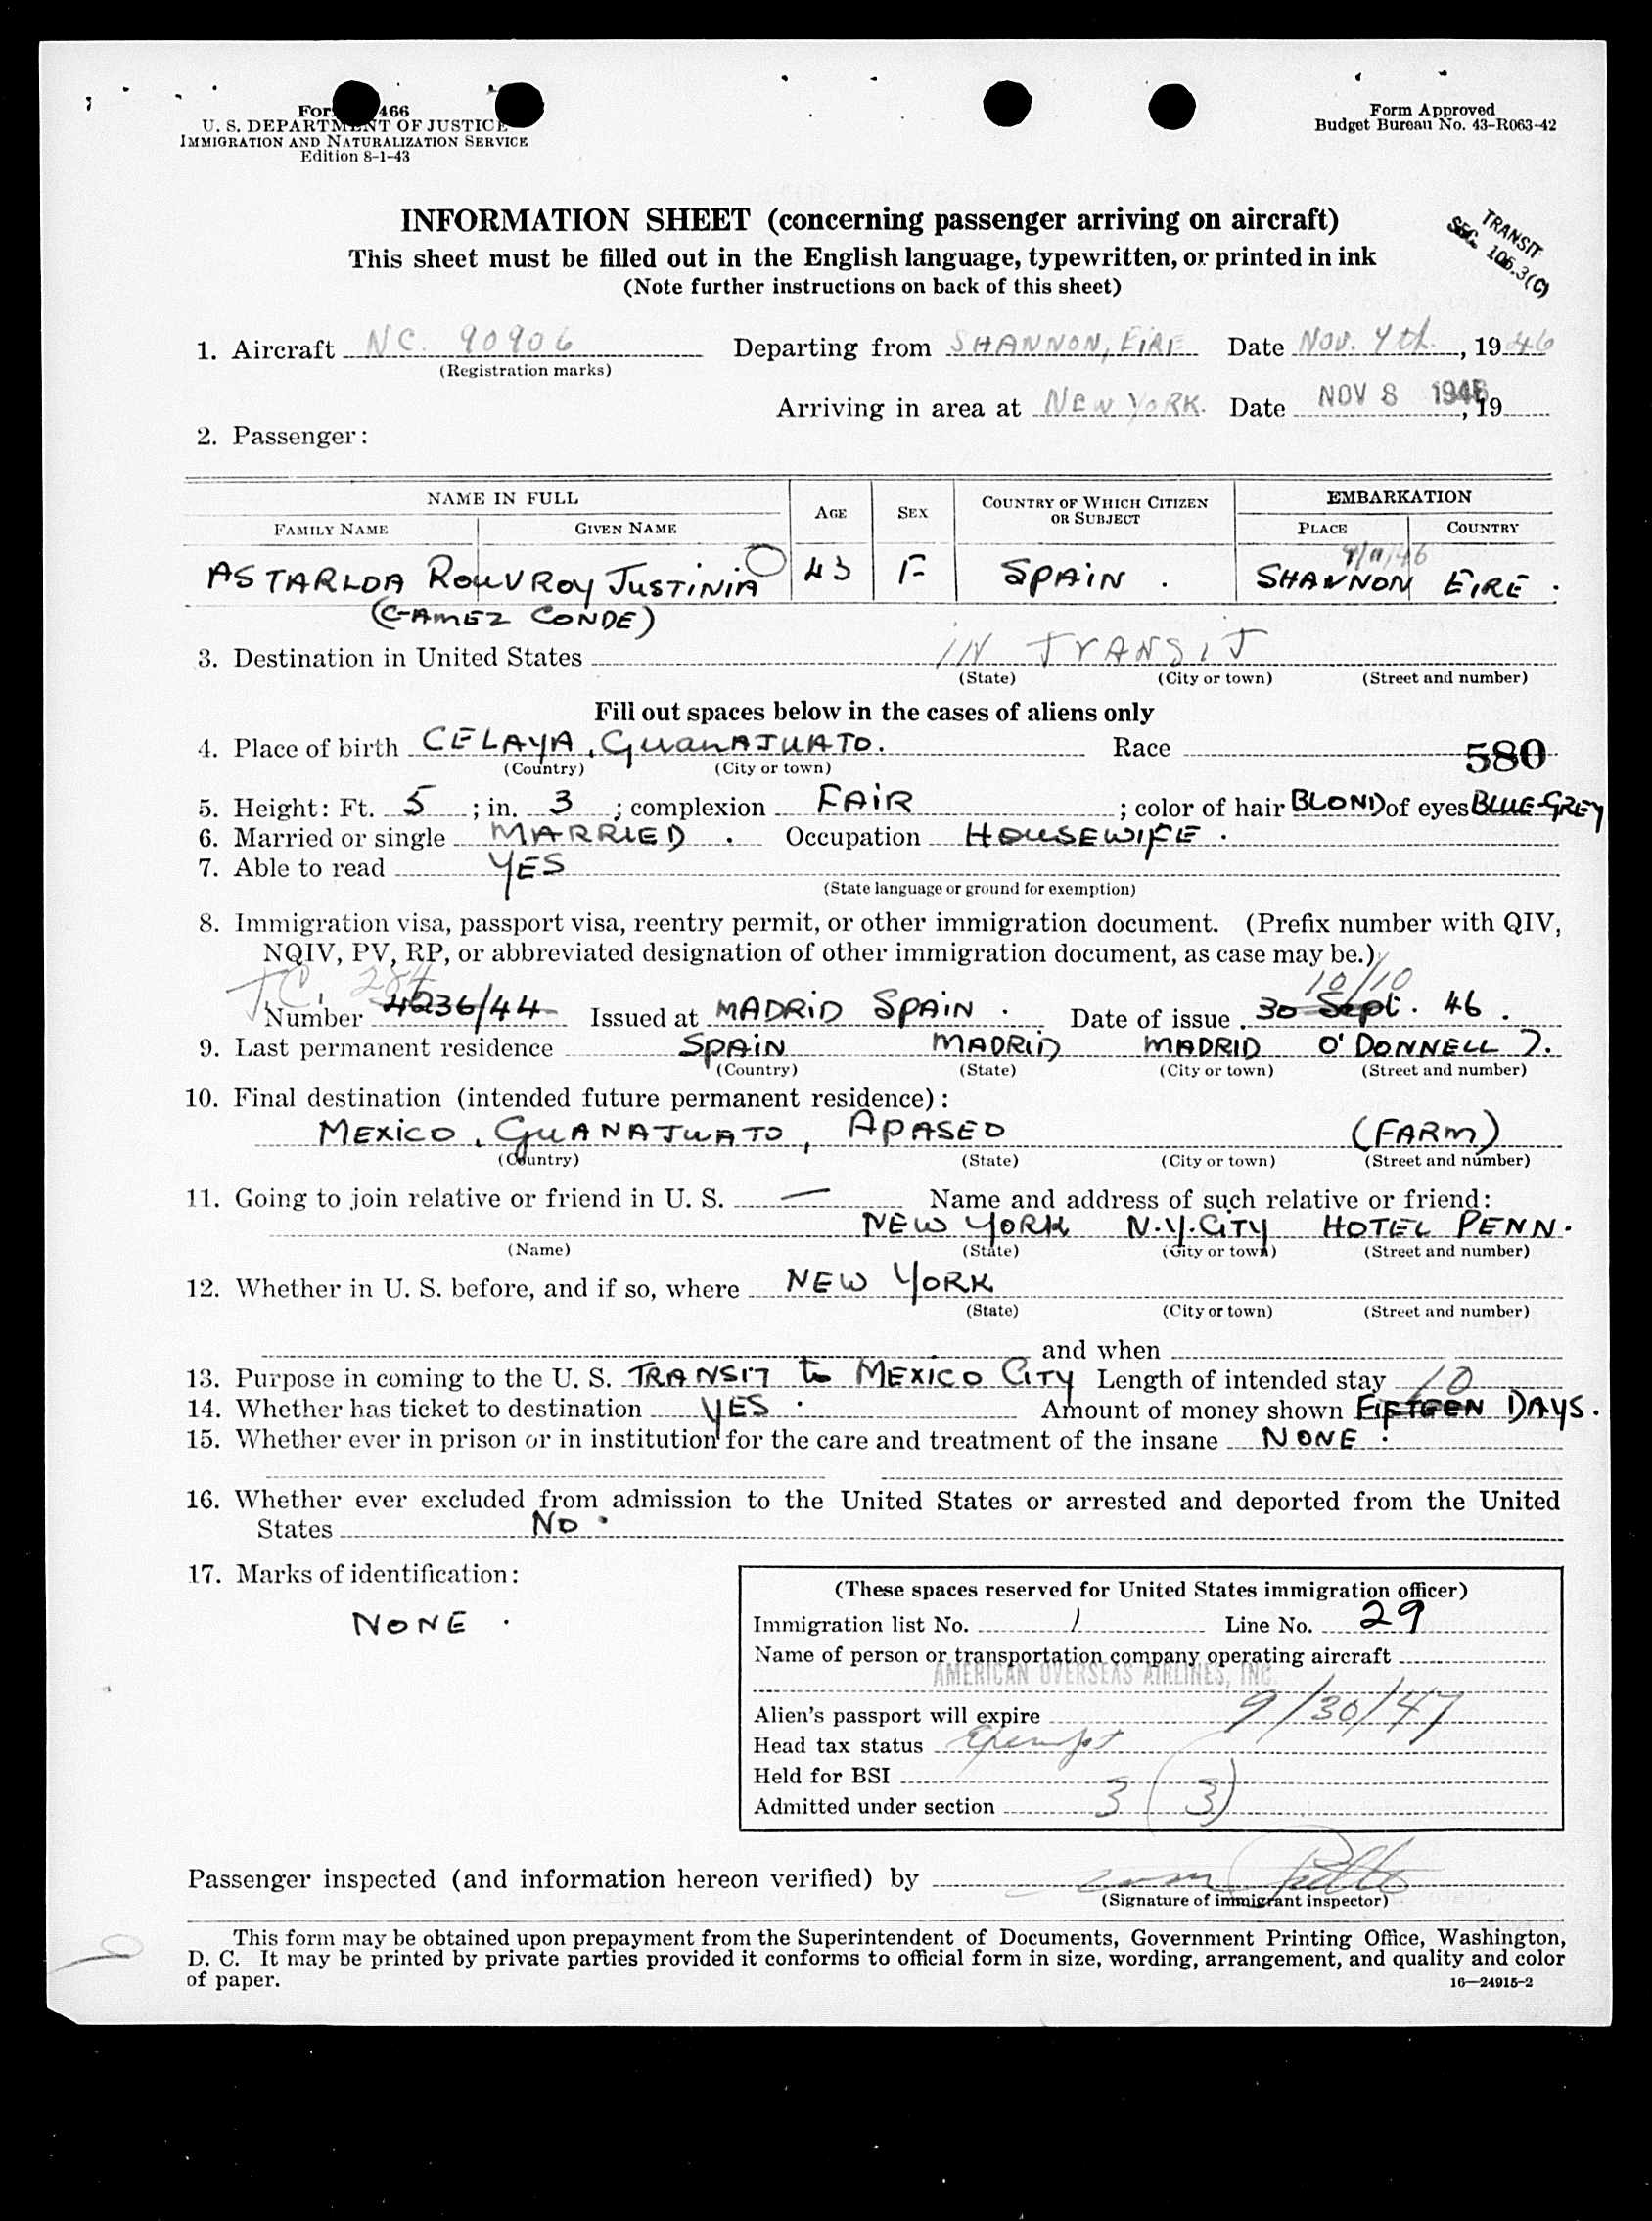 466
U. S. DEPARTMENT OF JUSTICE
IMMIGRATION AND NATURALIZATION SERVICE
Edition 8-1-43
Form Approved
Budget Bureau No. 43-R063-42
INFORMATION SHEET (concerning passenger arriving on aircraft)
This sheet must be filled out in the English language, typewritten, or printed in ink
(Note further instructions on back of this sheet)
TRANSIT
SEC. 105.3(C)
1. Aircraft NC. 90906 Departing from SHANNON, EIRE Date NOV. 7th, 1946
(Registration marks)
Arriving in area at NEW YORK. Date NOV 8 1946, 19
2. Passenger:
NAME IN FULL AGE SEX COUNTRY OF WHICH CITIZEN OR SUBJECT EMBARKATION
FAMILY NAME GIVEN NAME PLACE COUNTRY
ASTARLOA ROUVROY JUSTINIA 43 F SPAIN. SHANNON EIRE.
(GAMEZ CONDE)
3. Destination in United States IN TRANSIT
(State) (City or town) (Street and number)
Fill out spaces below in the cases of aliens only
4. Place of birth CELAYA, GUANAJUATO. Race 580
(Country) (City or town)
5. Height: Ft. 5; in. 3; complexion FAIR; color of hair BLOND of eyes BLUE-GREY
6. Married or single MARRIED. Occupation HOUSEWIFE.
7. Able to read YES
(State language or ground for exemption)
8. Immigration visa, passport visa, reentry permit, or other immigration document. (Prefix number with QIV,
NQIV, PV, RP, or abbreviated designation of other immigration document, as case may be.)
TC. 284 10/10
Number 4236/44 Issued at MADRID SPAIN. Date of issue 30 Sept. 46.
9. Last permanent residence SPAIN MADRID MADRID O'DONNELL 7.
(Country) (State) (City or town) (Street and number)
10. Final destination (intended future permanent residence):
MEXICO, GUANAJUATO, APASEO (FARM)
(Country) (State) (City or town) (Street and number)
11. Going to join relative or friend in U. S. — Name and address of such relative or friend:
NEW YORK N.Y. CITY HOTEL PENN.
(Name) (State) (City or town) (Street and number)
12. Whether in U. S. before, and if so, where NEW YORK
(State) (City or town) (Street and number)
and when
13. Purpose in coming to the U. S. TRANSIT to MEXICO CITY Length of intended stay 10
14. Whether has ticket to destination YES. Amount of money shown FIFTEEN DAYS.
15. Whether ever in prison or in institution for the care and treatment of the insane NONE.
16. Whether ever excluded from admission to the United States or arrested and deported from the United
States NO.
17. Marks of identification:
NONE.
(These spaces reserved for United States immigration officer)
Immigration list No. 1 Line No. 29
Name of person or transportation company operating aircraft
AMERICAN OVERSEAS AIRLINES, INC.
Alien's passport will expire 9/30/47
Head tax status Exempt
Held for BSI
Admitted under section 3 (3)
Passenger inspected (and information hereon verified) by
(Signature of immigrant inspector)
This form may be obtained upon prepayment from the Superintendent of Documents, Government Printing Office, Washington,
D. C. It may be printed by private parties provided it conforms to official form in size, wording, arrangement, and quality and color
of paper. 16—24915-2